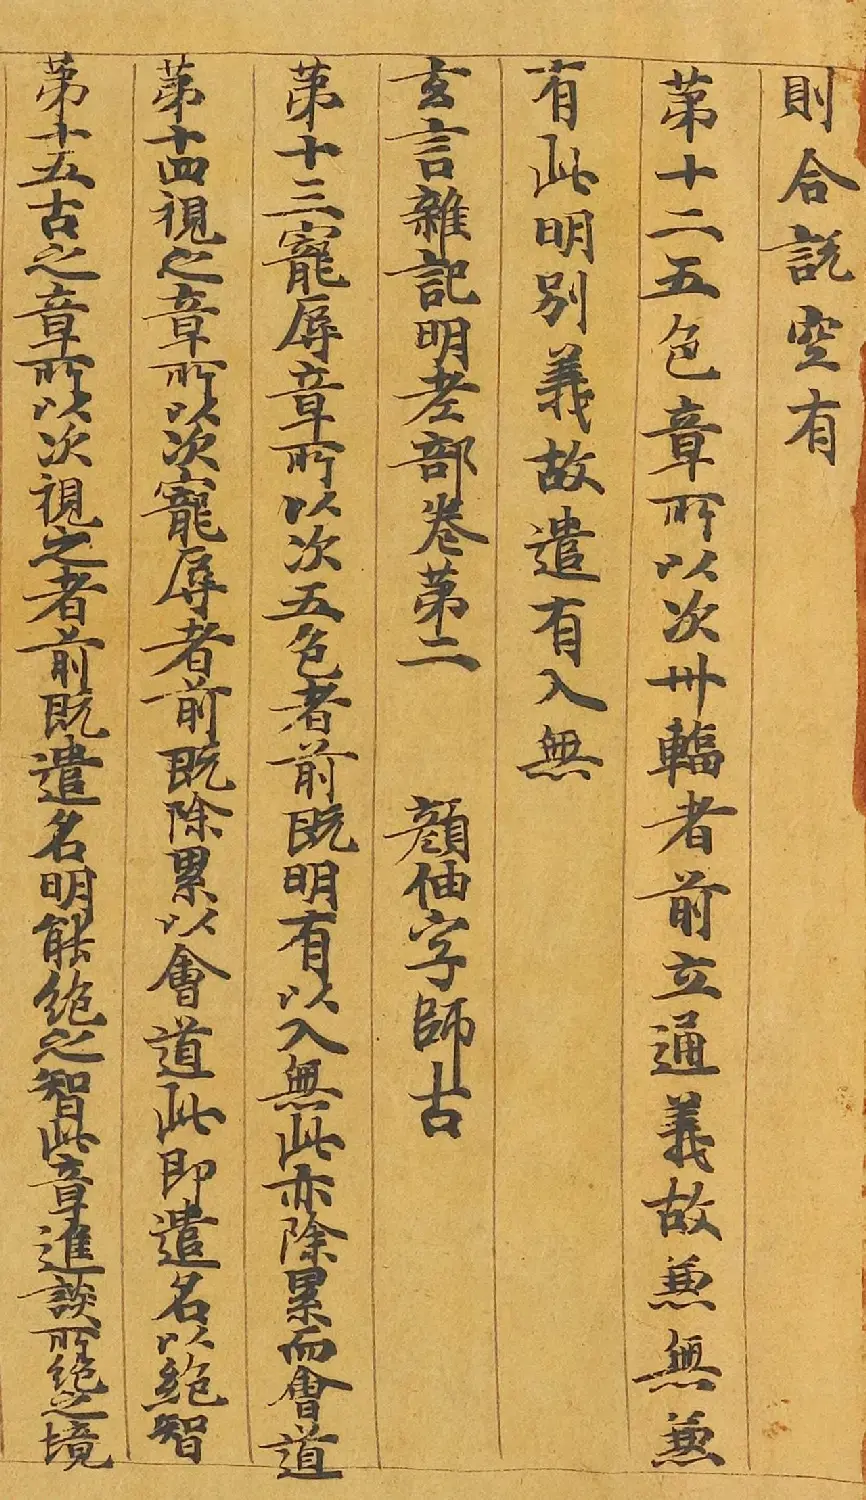 則合說空有
第十二五色章所以次卅輻者前立通義故兼無兼
有此明別義故遣有入無
玄言雜記明老部卷第二　顏伷字師古
第十三寵辱章所以次五色者前既明有以入無此亦除累而會道
第十四視之章所以次寵辱者前既除累以會道此即遣名以絕智
第十五古之章所以次視之者前既遣名明能絕之智此章進談所絕之境